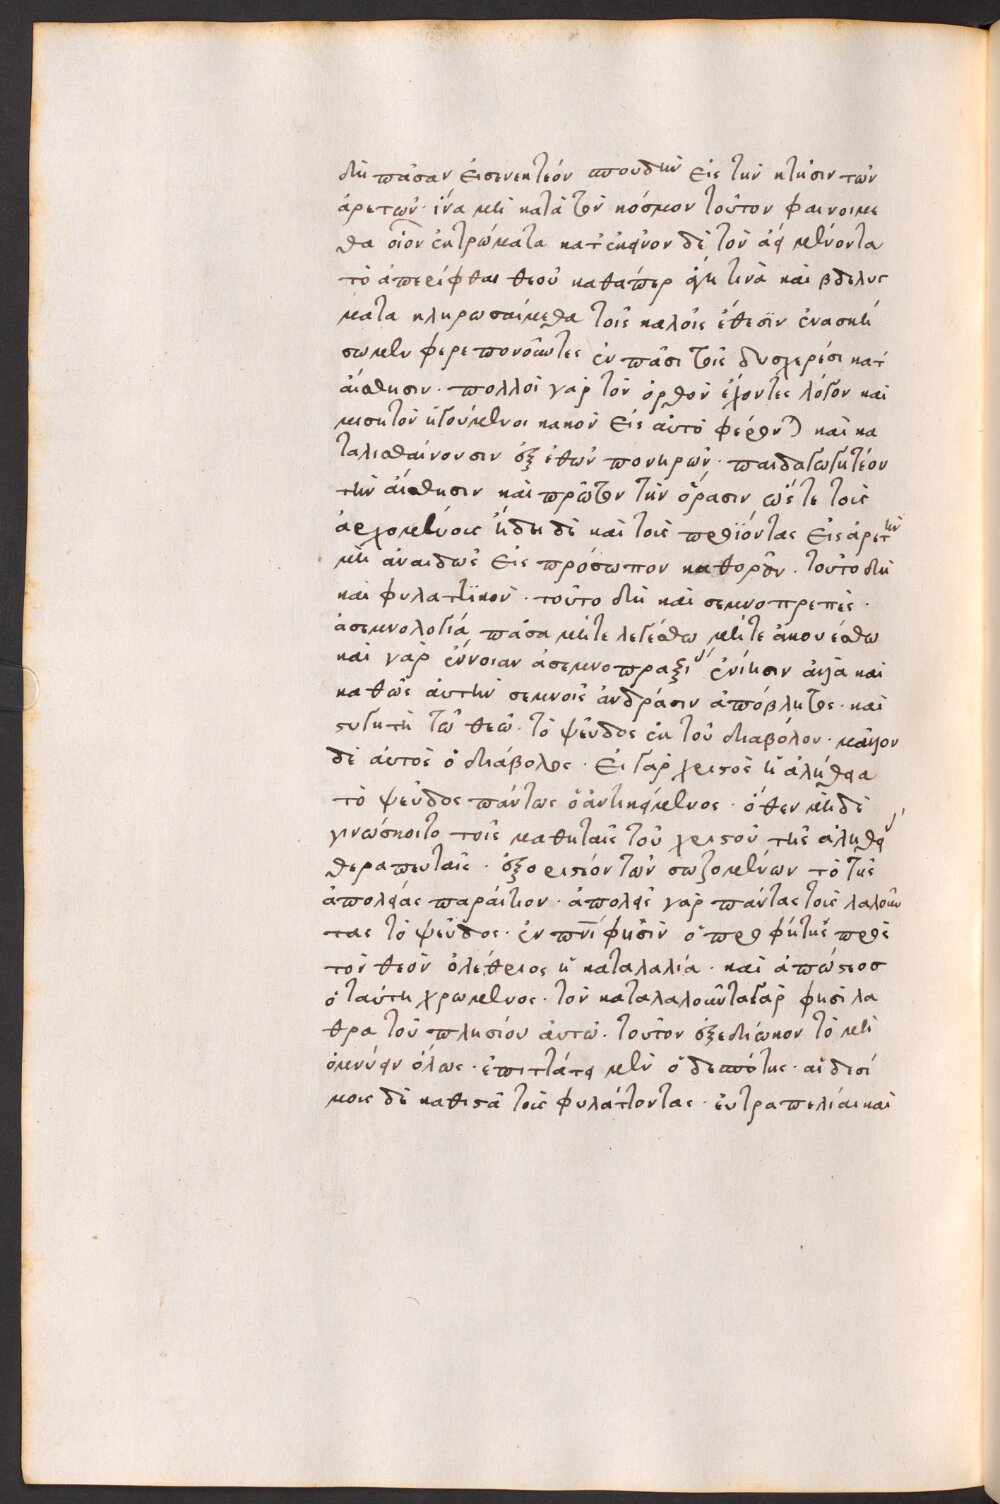 δὴ πᾶσαν εἰσενεκτέον σπουδὴν εἰς τὴν κτῆσιν τῶν
ἀρετῶν· ἵνα μὴ κατὰ τὸν κόσμον τοῦτον φαινοίμε
θα οἷον ἐκτρώματα κατ' ἐκεῖνον δὲ τὸν ἀεὶ μένοντα
τὸ ἀπερίφθαι θεοῦ καθάπερ ἄγη τινὰ καὶ βδελύσ
ματα κληρωσαίμεθα τοῖς καλοῖς ἔθεσϊν ἐνασκή
σωμεν φερεπονοῦντες ἐν πᾶσι τοῖς δυσχερέσι κατ'
αἴσθησιν· πολλοὶ γὰρ τὸν ὀρθὸν ἔχοντες λόγον καὶ
μισητὸν ἡγούμενοι κακὸν εἰς αὐτὸ φέρονται καὶ κα
τολισθαίνουσιν ἐξ ἐθῶν πονηρῶν· παιδαγωγητέον
τὴν αἴσθησιν καὶ πρῶτον τὴν ὅρασιν ὥστε τοὺς
ἀρχομένους ἤδη δὲ καὶ τοὺς προϊόντας εἰς ἀρετὴν
μὴ ἀναιδῶς εἰς πρόσωπον καθορᾶν· τοῦτο δὴ
καὶ φυλακτϊκόν· τοῦτο δὴ καὶ σεμνοπρεπές·
ἀσεμνολογία πᾶσα μήτε λεγέσθω μήτε ἀκουέσθω
καὶ γὰρ ἔννοιαν ἀσεμνοπραξίας ἐνίησιν ἀλλὰ καὶ
καθὼς αὐτὴν σεμνοῖς ἀνδράσιν ἀπόβλητος· καὶ
στυγητὴ τῶ θεῶ· τὸ ψεῦδος ἐκ τοῦ διαβόλου· μᾶλλον
δὲ αὐτὸς ὁ διάβολος· εἰ γὰρ χριστὸς ἡ ἀλήθεια
τὸ ψεῦδος πάντως ὁ ἀντικείμενος· ὅθεν μηδὲ
γινώσκοιτο τοῖς μαθηταῖς τοῦ χριστοῦ τῆς ἀληθείας
θεραπευταῖς· ἐξοριστέον τῶν σωζομένων τὸ τῆς
ἀπολείας παραίτιον· ἀπολεῖς γὰρ πάντας τοὺς λαλοῦν
τας τὸ ψεῦδος· ἐν πνι φησῒν ὁ προφήτης πρὸς
τὸν θεὸν ὀλέθριος ἡ καταλαλία· καὶ ἀπώστος
ὁ ταύτη χρώμενος· τὸν καταλαλοῦντα γάρ φησι λά
θρα τοῦ πλησίου αὐτῶ· τοῦτον ἐξεδίωκον τὸ μὴ
ὀμνύειν ὅλως· ἐπιττάτει μὲν ὁ δεσπότης· αἰδεσί
μους δὲ καθιστᾶ τοὺς φυλάττοντας· εὐτραπελίαι καὶ